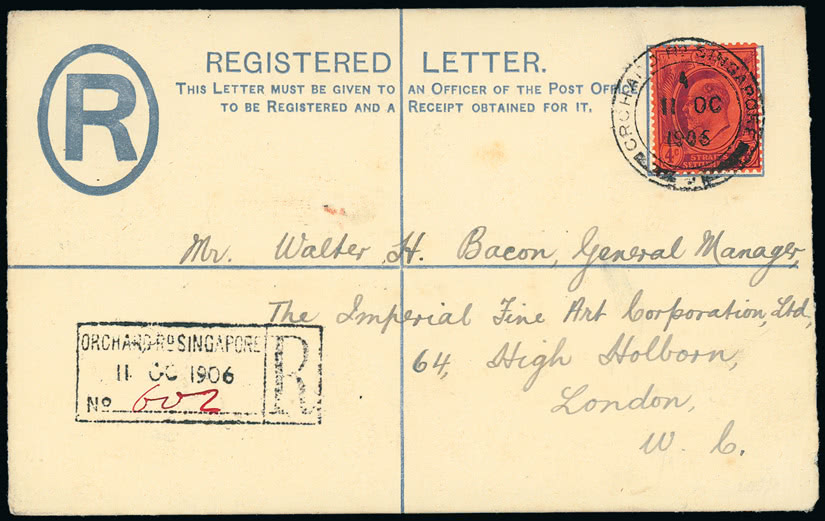 R
REGISTERED LETTER.
THIS LETTER MUST BE GIVEN TO AN OFFICER OF THE POST OFFICE
TO BE REGISTERED AND A RECEIPT OBTAINED FOR IT.
ORCHARD RD SINGAPORE
A
11 OC
1906
STRAITS
SETTLEMENTS
Mr. Walter H. Bacon, General Manager,
The Imperial Fine Art Corporation, Ltd,
64, High Holborn,
London,
W. C.
ORCHARD RD SINGAPORE
11 OC 1906
No 602
R